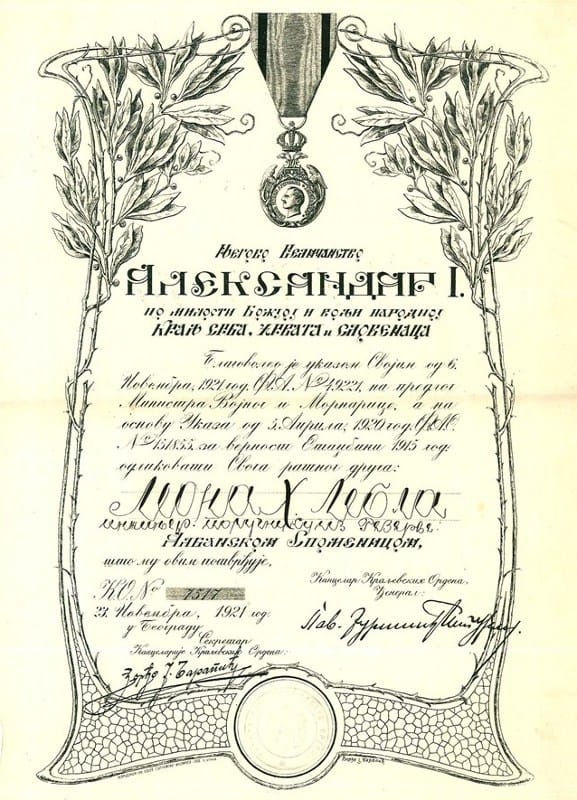 Његово Величанство
Александар I.
по милости Божјој и вољи народној
Краљ Срба, Хрвата и Словенаца
Благоволео је указом Својим од 6.
Новембра, 1921 год. Ф.А. № 4922, на предлог
Министра Војног и Морнарице, а на
основу Указа од 5. Априла, 1920 год. Ф.А.О.
№ 151855, за верност Отаџбини 1915 год.
одликовати Свога ратног друга:
Леона Х. Лебла
инжињер. поручника у резерве
Албанском Споменицом,
што му овим потврђује,
К.О. № 7517
23. Новембра, 1921 год.
у Београду
Канцелар Краљевских Ордена,
Ђенерал:
Секретар
Канцеларије Краљевских Ордена: